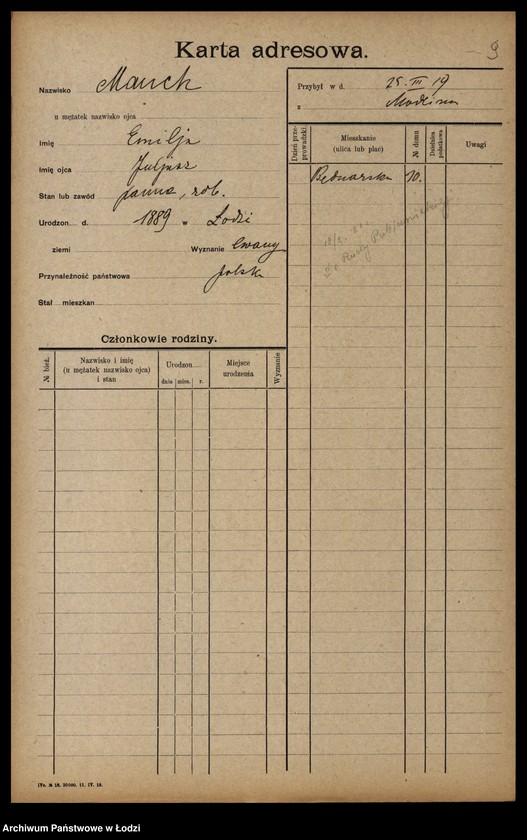 Karta adresowa.
9
Nazwisko Manch
u mężatek nazwisko ojca
Imię Emilja
Imię ojca Juljusz
Stan lub zawód panna, rob.
Urodzon d. 1889 w Łodzi
ziemi Wyznanie ewang
Przynależność państwowa polska
Stał. mieszkan
Przybył w d. 25 III 19
z
Dzień prze-prowadzki
Mieszkanie (ulica lub plac)
№ domu
Dzielnica podatkowa
Uwagi
Bednarska 10.
do Rudy Pabjanickiej
Członkowie rodziny.
№ bież.
Nazwisko i imię
(u mężatek nazwisko ojca)
i stan
Urodzon
dnia mies. r.
Miejsce
urodzenia
Wyznanie
IVa. № 18. 30000. 11. IV. 18.
Archiwum Państwowe w Łodzi